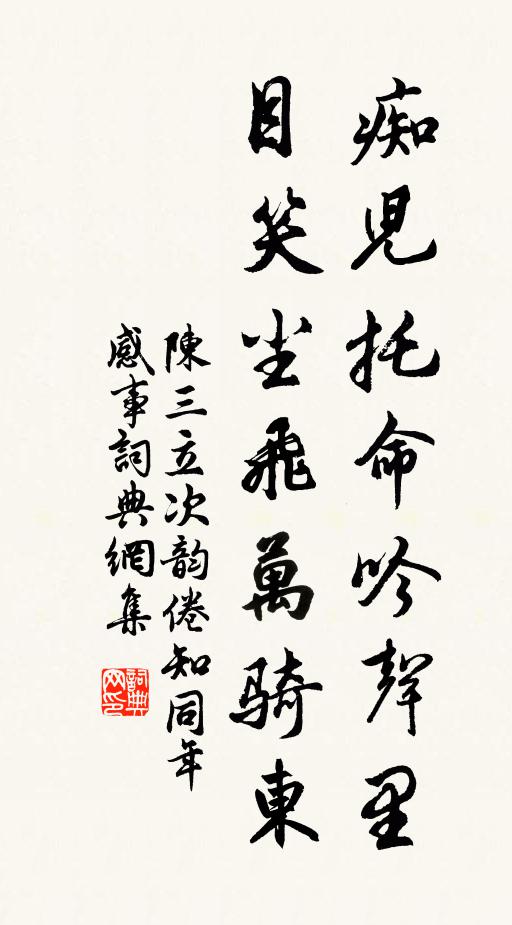 痴兒托命吟聲里
目笑尘飛萬騎東
陳三立次韵倦知同年
感事詞典網集
詞典网印